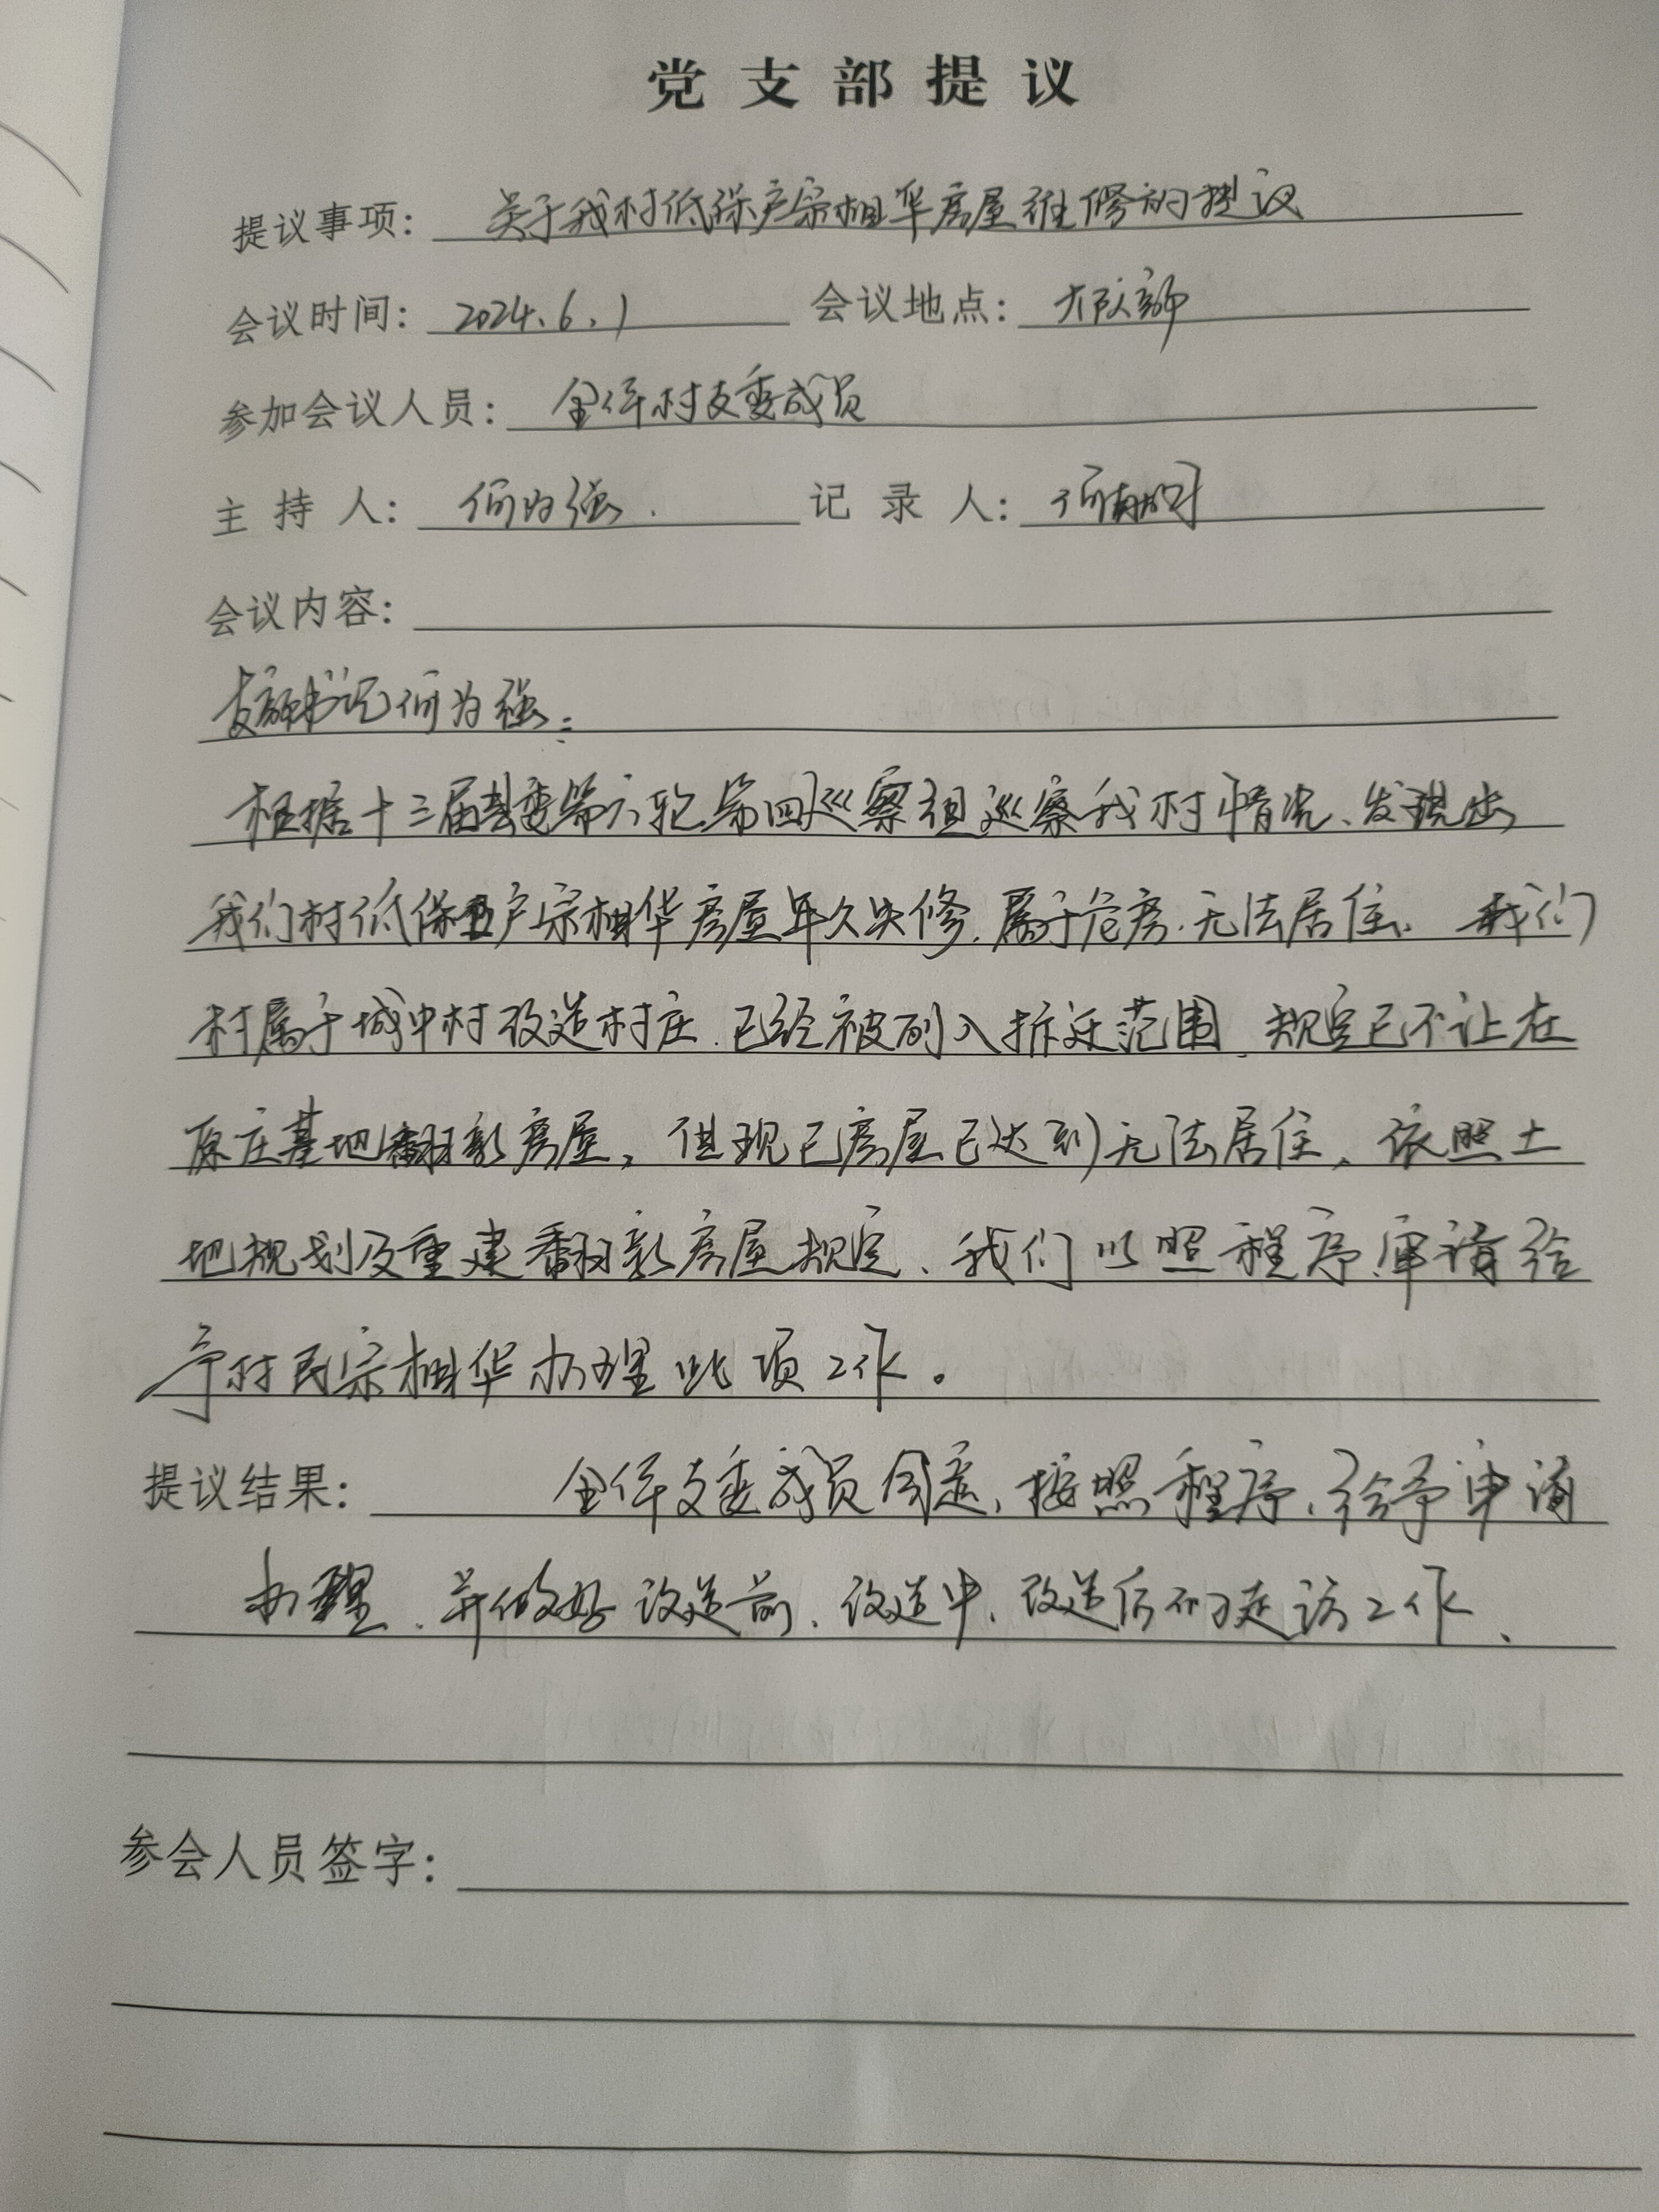 党支部提议
提议事项： 关于我村低保户宗相华房屋维修的提议
会议时间： 2024.6.1 会议地点： 大队部
参加会议人员： 全体村支委成员
主持人： 何为强. 记录人： 何
会议内容：
支部书记何为强：
根据十三届县委第六轮第四巡察组巡察我村情况、发现出
我们村低保户宗相华房屋年久失修.属于危房.无法居住。我们
村属于城中村改造村庄.已经被列入拆迁范围、规定已不让在
原庄基地翻新房屋，但现已房屋已达到无法居住、依照土
地规划及重建翻新房屋规定、我们以照程序申请给
予村民宗相华办理此项工作。
提议结果： 全体支委成员同意、按照程序、给予申请
办理、并做好改造前、改造中、改造后的走访工作、
参会人员签字：